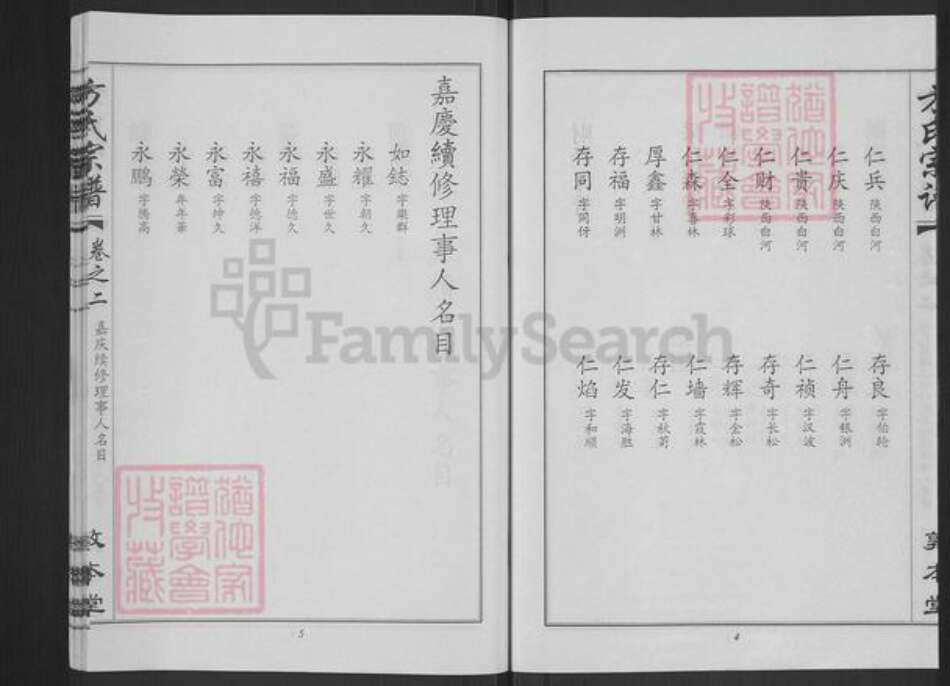 仁兵 陕西白河
仁庆 陕西白河
仁貴 陕西白河
仁财 陕西白河
仁全 字彩球
仁森 字喜林
厚鑫 字甘林
存福 字明洲
存同 字同俦
存良 字伯铨
仁舟 字银洲
仁祯 字汉波
存奇 字长松
存辉 字金松
仁墙 字霞林
存仁 字秋蔚
仁发 字海胜
仁焰 字和顺
4
嘉慶續修理事人名目
如鋕 字樂群
永耀 字朝久
永盛 字世久
永福 字德久
永禧 字德洋
永富 字坤久
永榮 字年華
永鵬 字騰高
方氏宗譜
卷之二
嘉庆续修理事人名目
敦本堂
5
猶他家譜學會收藏
猶他家譜學會收藏
FamilySearch